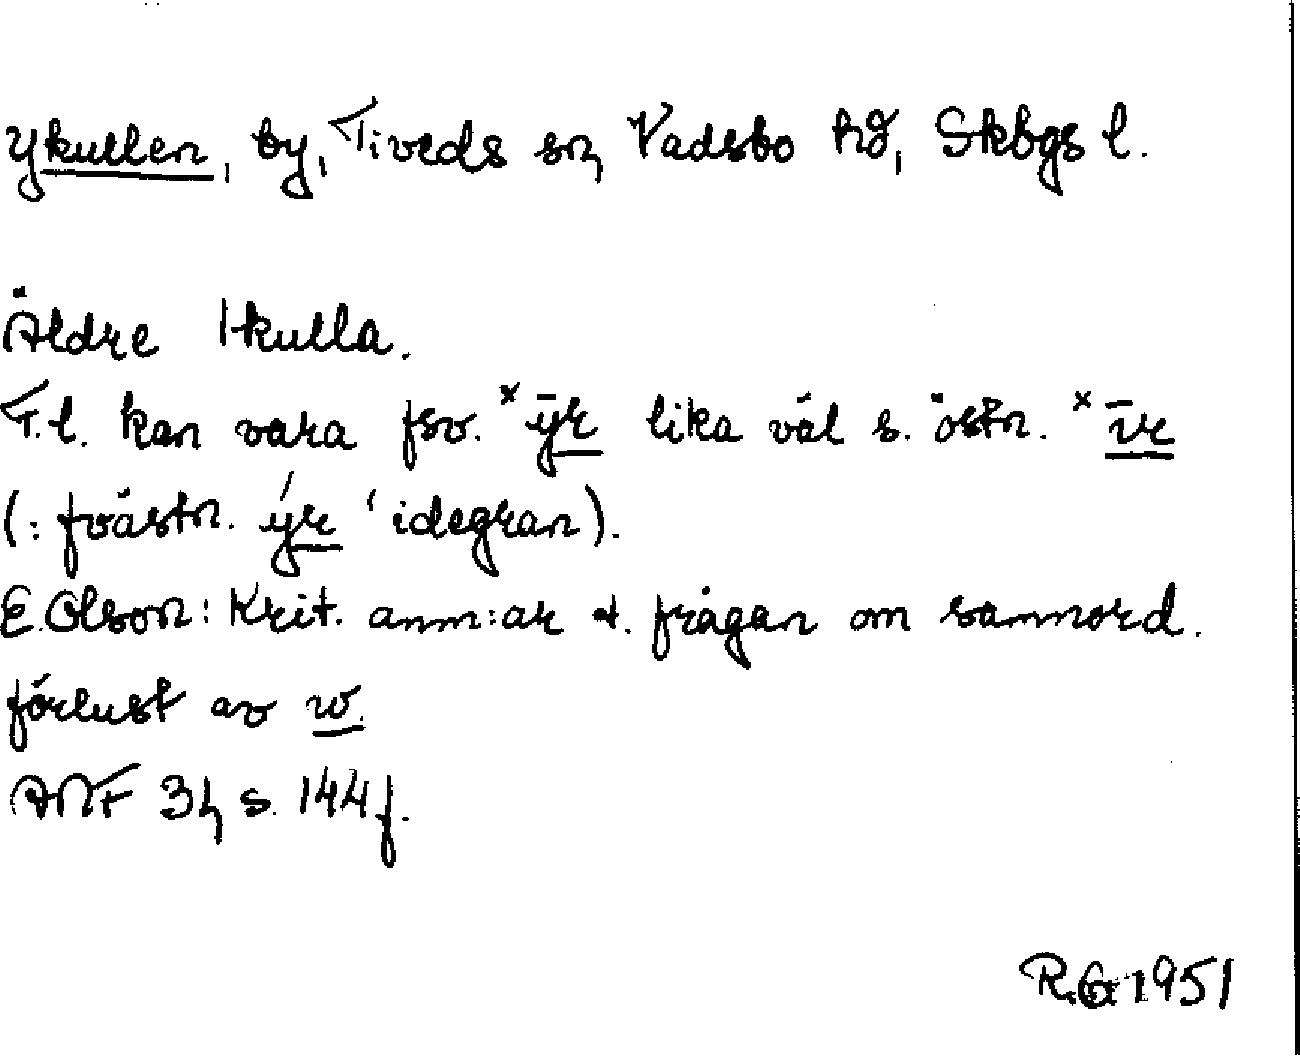 Ykullen, by, Tiveds sn, Vadsbo hd, Skbgs l.
Äldre Ikulla.
F.l. kan vara fsv. *ȳr lika väl s. östn. *īr
(: fvästn. ýr ' idegran).
E. Olson: Krit. anm:ar t. frågan om samnord.
förlust av w.
ANF 34, s. 144 f.
R.G. 1951